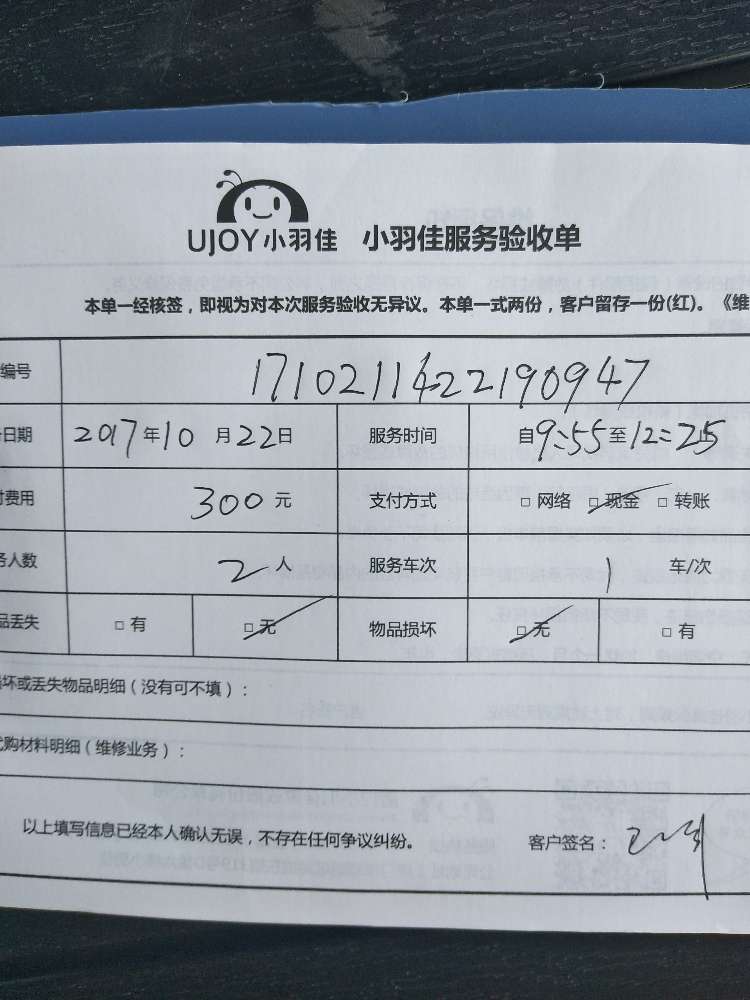 UJOY小羽佳 小羽佳服务验收单
本单一经核签，即视为对本次服务验收无异议。本单一式两份，客户留存一份(红)。《维
编号 1710211422190947
日期 2017年10月22日 服务时间 自9:55至12:25
费用 300元 支付方式 □ 网络 □ 现金 □ 转账
人数 2人 服务车次 1 车/次
品丢失 □ 有 □ 无 物品损坏 □ 无 □ 有
坏或丢失物品明细（没有可不填）：
购材料明细（维修业务）：
以上填写信息已经本人确认无误，不存在任何争议纠纷。 客户签名：